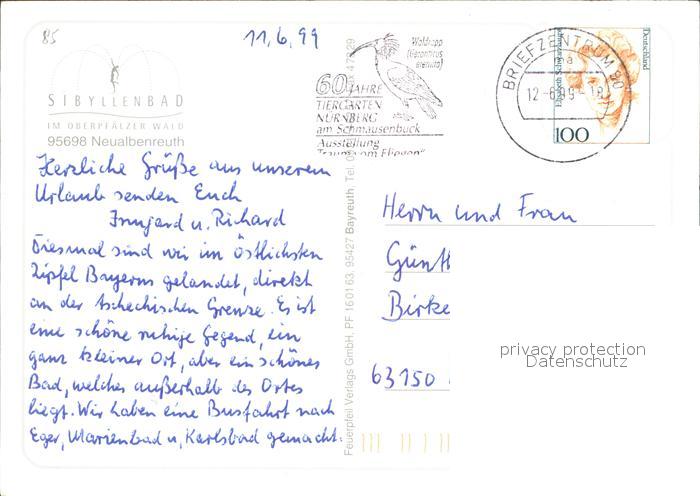 85
11.6.99
SIBYLLENBAD
IM OBERPFÄLZER WALD
95698 Neualbenreuth
Herzliche Grüße aus unserem
Urlaub senden Euch
Irmgard u. Richard
Diesmal sind wir im östlichsten
Zipfel Bayerns gelandet, direkt
an der tschechischen Grenze. Es ist
eine schöne ruhige Gegend, ein
ganz kleiner Ort, aber ein schönes
Bad, welches außerhalb des Ortes
liegt. Wir haben eine Busfahrt nach
Eger, Marienbad u. Karlsbad gemacht.
Feuerpfeil Verlags GmbH. PF 160163, 95427 Bayreuth
Waldrapp
(Geronticus
eremita)
60 JAHRE
TIERGARTEN
NÜRNBERG
am Schmausenbuck
Ausstellung
BRIEFZENTRUM 90
12-6.99-18
Deutschland
100
Herrn und Frau
Günth
Birke
63150
privacy protection
Datenschutz